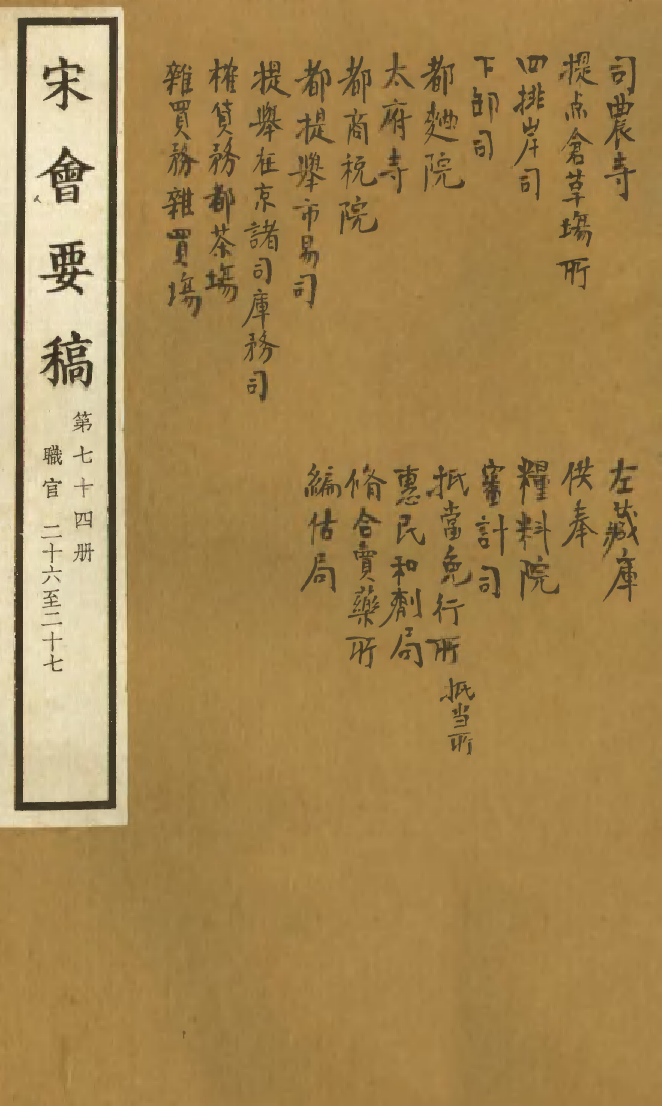 司農寺
提点倉草場所
四排岸司
下卸司
都麯院
太府寺
都商稅院
都提舉市易司
提舉在京諸司庫務司
榷貨務都茶場
雜買務雜買場
左藏庫
供奉
糧料院
審計司
抵當免行所 抵当所
惠民和劑局
脩合賣藥所
編估局
宋會要稿
第七十四册
職官 二十六至二十七